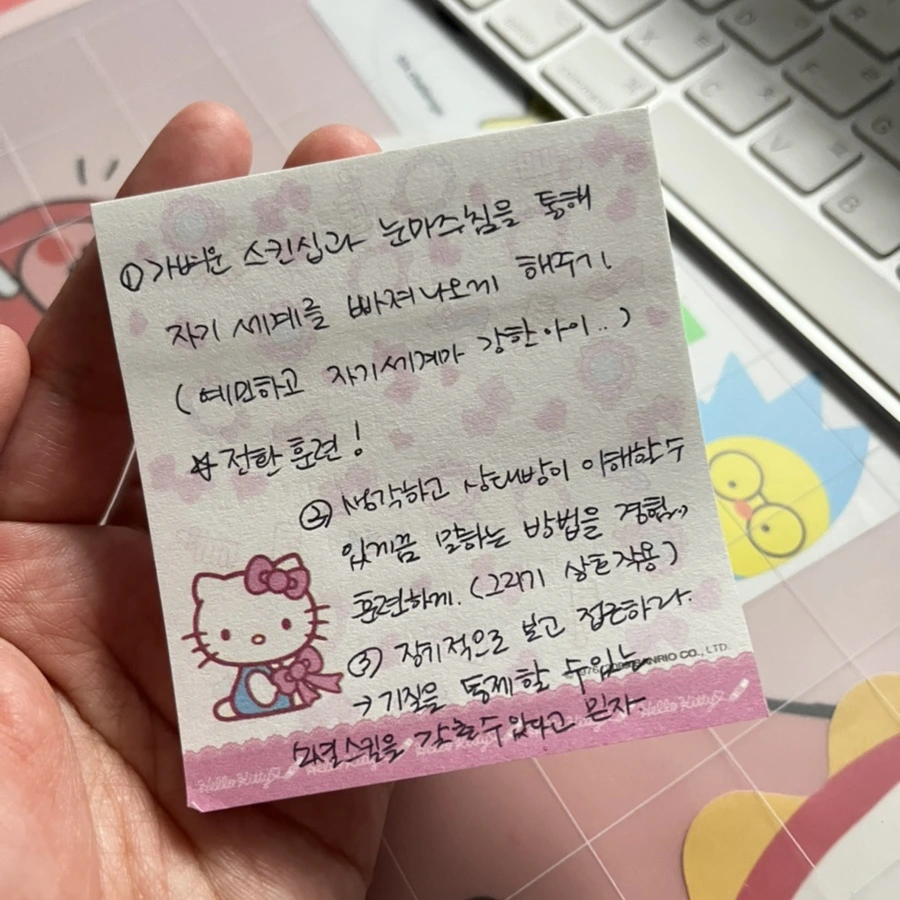 ① 가벼운 스킨십과 눈마주침을 통해
자기 세계를 빠져나오게 해주기.
( 예민하고 자기세계가 강한아이.. )
☆ 전환 훈련!
② 생각하고 상대방이 이해할수
있게끔 말하는 방법을 경험,,,
훈련하게. (그리기 상호작용)
③ 장기적으로 보고 접근하라.
SANRIO CO., LTD.
→ 기질을 통제할 수있는
조절스킬을 갖출수있다고 믿자
Hello Kitty Hello Kitty Hello Kitty